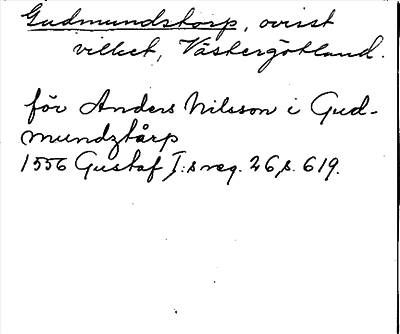 Gudmundstorp, ovisst
vilket, Västergötland.
för Anders Nilsson i Gud-
mundztårp
1556 Gustaf I:s reg. 26, s. 619.